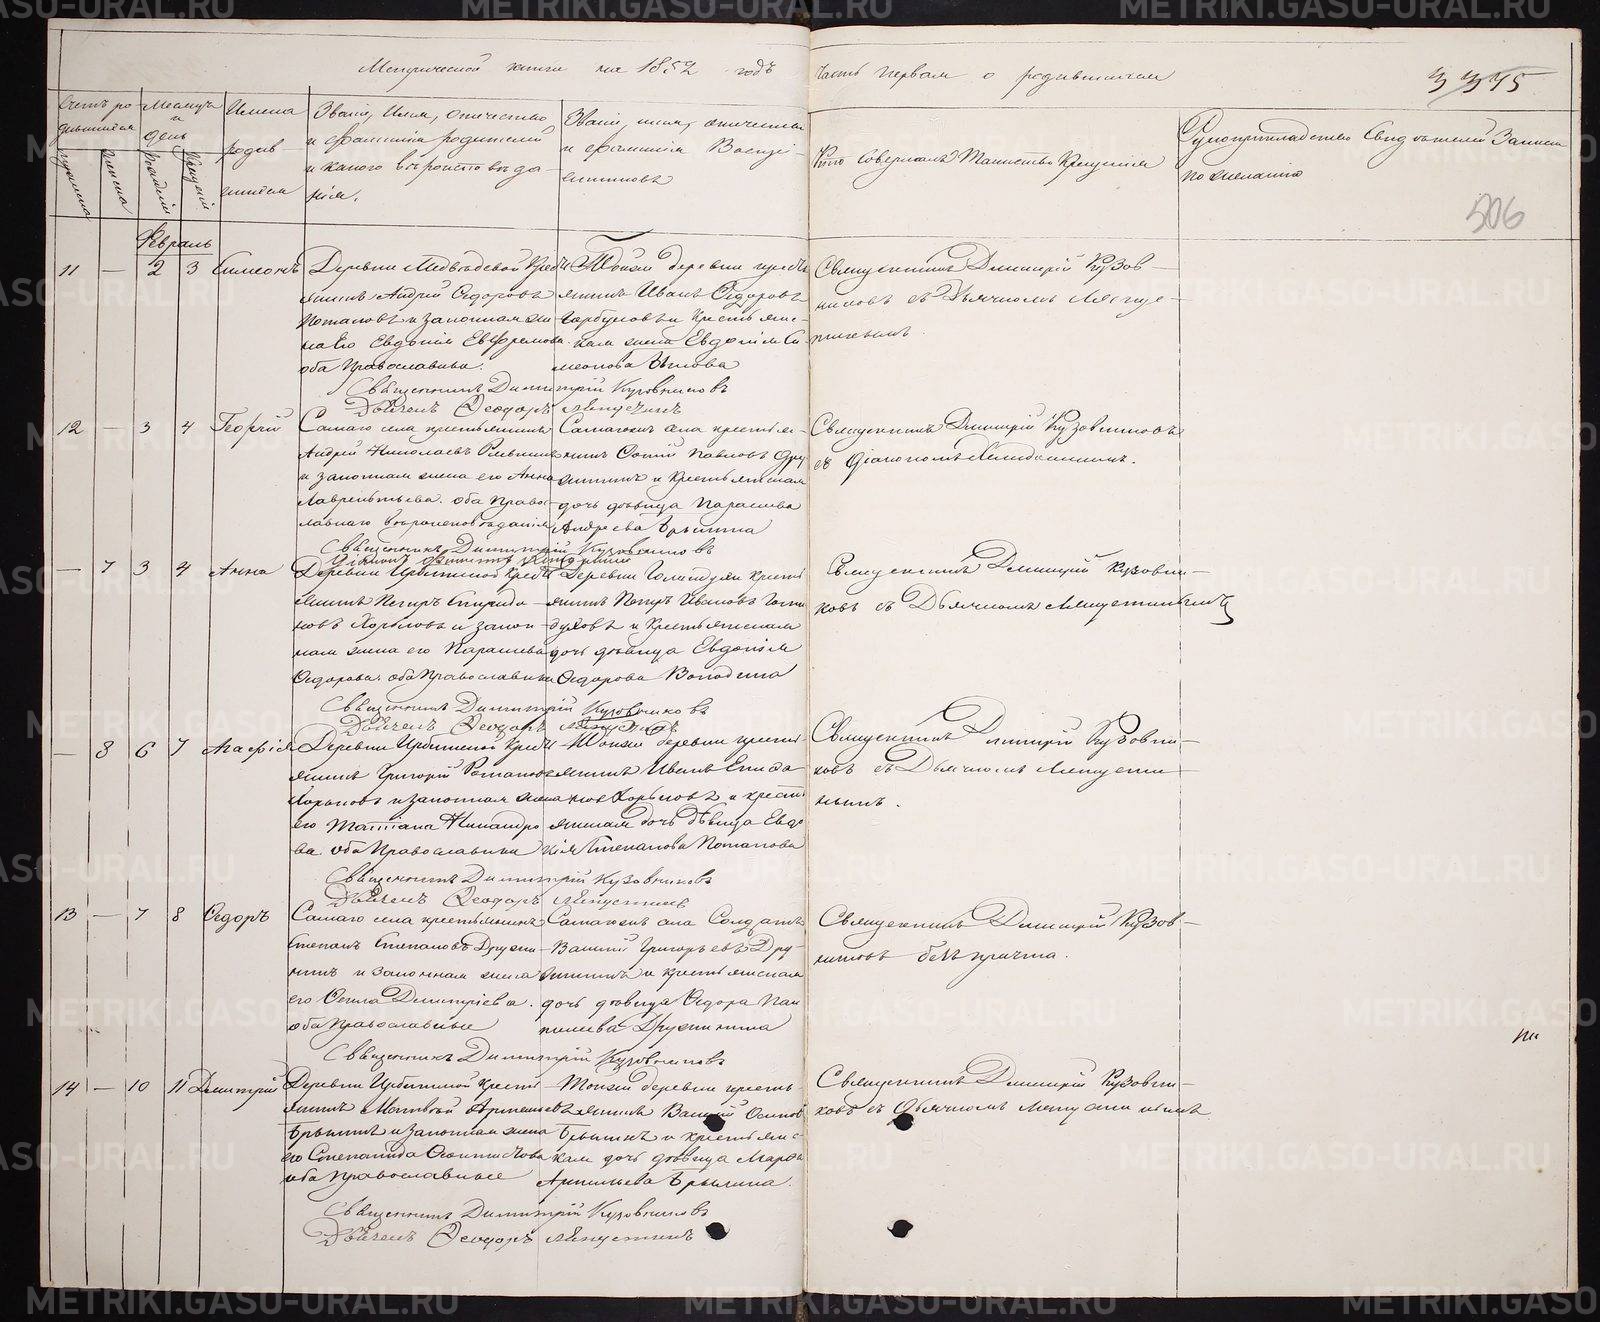 Метрической книги на 1852 годъ часть первая о родившихся
3375
506
Счетъ ро-
дившихся
Мужеска
Женска
Месяцъ
и
день
Рожденія
Крещенія
Имена
родив
шихся
Званіе, Имя, отчество
и фамилія родителей
и какого вѣроисповѣда-
нія.
Званіе, имя, отчество
и фамилія Воспрі-
емниковъ
Кто совершалъ Таинство Крещенія
Рукоприкладство Свидѣтелей Записи
по желанію
Февраль
11 — 2 3 Симеонъ
Деревни Медвѣдевой Крестъ
янинъ Андрей Ѳедоровъ
Потаповъ и законная же
на Его Евдокія Ефремова
оба православны.
Тойже деревни крестъ
янинъ Иванъ Ѳедоровъ
Горбуновъ и крестьянс-
кая жена Евдокія Си
меонова
Священникъ Димитрій Кузов-
никовъ съ Дьячкомъ Ляпус-
тинымъ
Священникъ Димитрій Кузовниковъ
Дьячекъ Ѳеодоръ Ляпустинъ
12 — 3 4 Георгій
Самаго села крестьянинъ
Андрей Николаевъ
и законная жена его Анна
Лаврентьева. оба право-
славнаго вѣроисповѣданія
Самагожъ села крестья-
нинъ Павловъ Дру
жининъ и Крестьянская
дочь дѣвица Параскева
Андреева Брылина
Священникъ Димитрій Кузовниковъ
съ Діакономъ
Священникъ Димитрій Кузовниковъ
— 7 3 4 Анна
Деревни Ирбитской Крестъ
янинъ Петръ Спиридо-
новъ Хорьковъ и закон-
ная жена его Параскева
Ѳедорова. оба Православны
Деревни Голиндухи кресть
янинъ Петръ Ивановъ Голин
духовъ и Крестьянская
дочь дѣвица Евдокія
Ѳедорова
Священникъ Димитрій Кузовни-
ковъ съ Дьячкомъ Ляпустинымъ
Священникъ Димитрій Кузовниковъ
Дьячекъ Ѳеодоръ Ляпустинъ
— 8 6 7 Агафія
Деревни Ирбитской Крестъ
янинъ Григорій
Хорьковъ и законная жена
его Татіана Никандро
ва. оба Православны
Тойже деревни кресть
янинъ Иванъ
Хорьковъ и кресть
янская дочь дѣвица Евдо
кія Степанова Потапова
Священникъ Димитрій Кузовни-
ковъ съ Дьячкомъ Ляпусти
нымъ.
Священникъ Димитрій Кузовниковъ
Дьячекъ Ѳеодоръ Ляпустинъ
13 — 7 8 Ѳедоръ
Самаго села крестьянинъ
Степанъ Степановъ Дружи-
нинъ и законная жена
его Димитріева.
оба православные
Самагожъ села Солдатъ
Василій Григорьевъ Дру-
жининъ и крестьянская
дочь дѣвица Ѳедора Пан
Дружинина
Священникъ Димитрій Кузов-
никовъ безъ причта.
Священникъ Димитрій Кузовниковъ
14 — 10 11 Дмитрій
Деревни Ирбитской Кресть
янинъ Матвѣй Артемьевъ
Брылинъ и законная жена
его Степанида
оба православные
Тойже деревни кресть
янинъ Василій Осипов
Брылинъ и крестьянс-
кая дочь дѣвица Марѳа
Артемьева Брылина.
Священникъ Димитрій Кузовни-
ковъ съ Дьячкомъ Ляпустинымъ
Священникъ Димитрій Кузовниковъ
Дьячекъ Ѳеодоръ Ляпустинъ
METRIKI.GASO-URAL.RU